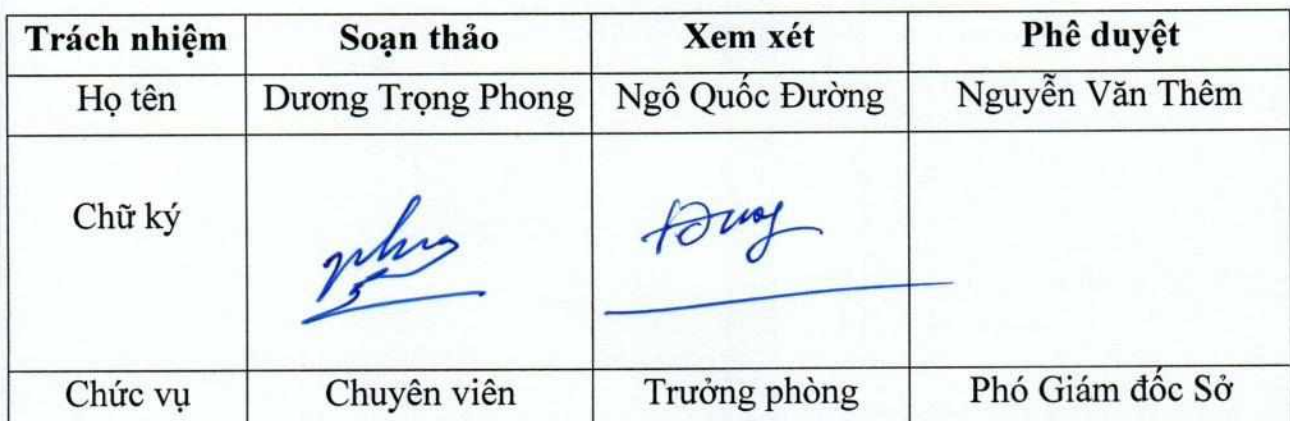 Trách nhiệm Soạn thảo Xem xét Phê duyệt
Họ tên Dương Trọng Phong Ngô Quốc Đường Nguyễn Văn Thêm
Chữ ký
Chức vụ Chuyên viên Trưởng phòng Phó Giám đốc Sở